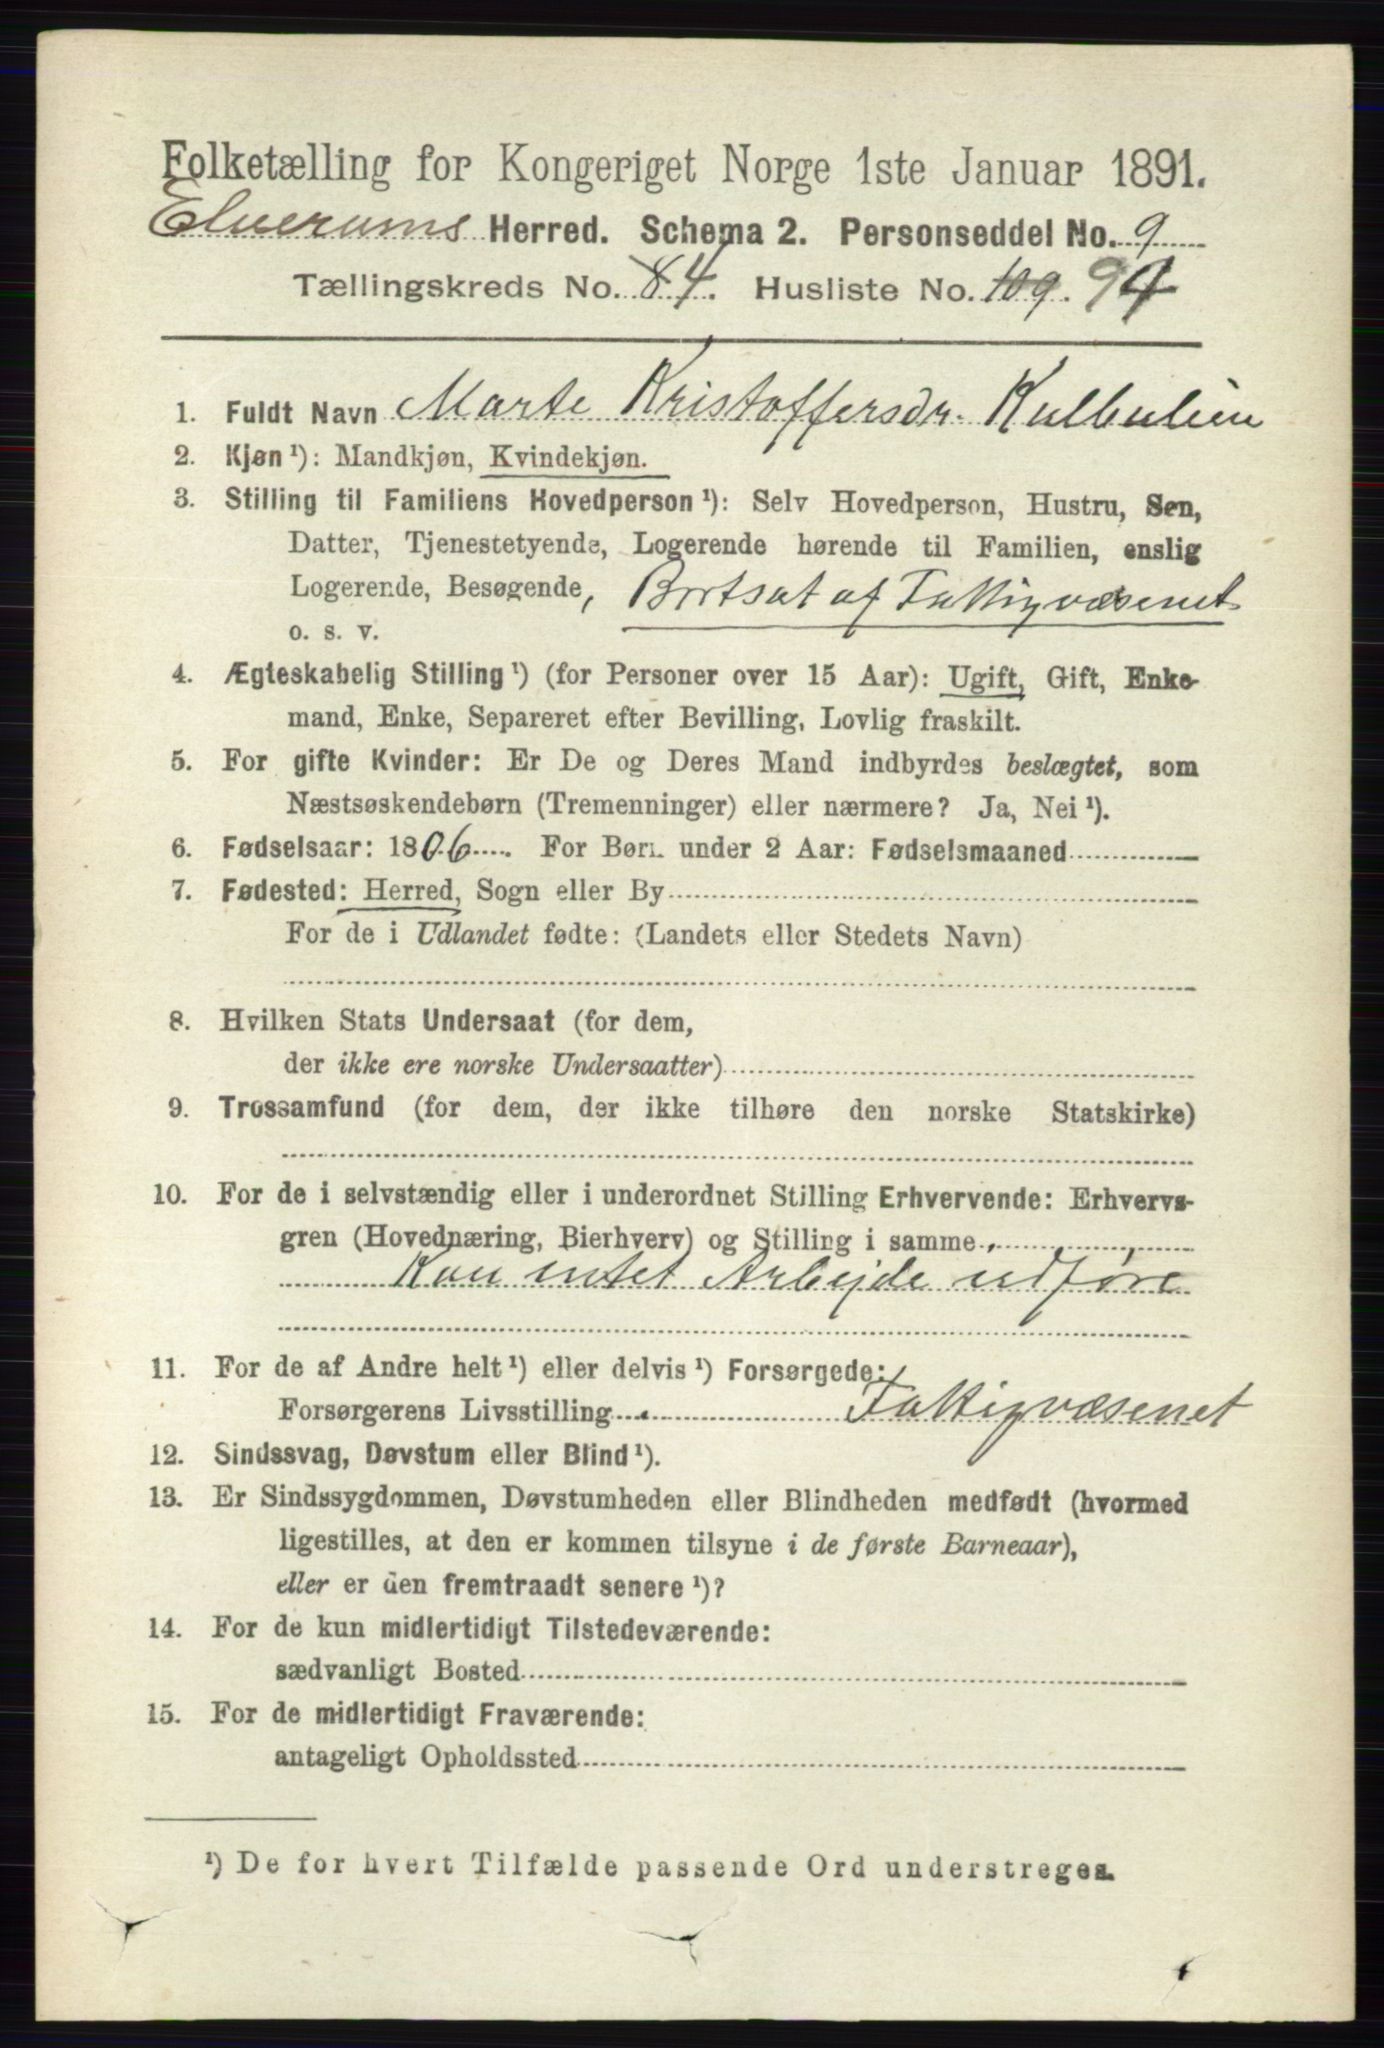 Folketælling for Kongeriget Norge 1ste Januar 1891.
Elverums Herred. Schema 2. Personseddel No. 9
Tællingskreds No. 84. Husliste No. 109. 94
1. Fuldt Navn Marte Kristoffersdr. Kulbulien
2. Kjøn ¹): Mandkjøn, Kvindekjøn.
3. Stilling til Familiens Hovedperson ¹): Selv Hovedperson, Hustru, Søn,
Datter, Tjenestetyende, Logerende hørende til Familien, enslig
Logerende, Besøgende, Bortsat af Fattigvæsenet
o. s. v.
4. Ægteskabelig Stilling ¹) (for Personer over 15 Aar): Ugift, Gift, Enke-
mand, Enke, Separeret efter Bevilling, Lovlig fraskilt.
5. For gifte Kvinder: Er De og Deres Mand indbyrdes beslægtet, som
Næstsøskendebørn (Tremenninger) eller nærmere? Ja, Nei ¹).
6. Fødselsaar: 1806. For Børn under 2 Aar: Fødselsmaaned
7. Fødested: Herred, Sogn eller By
For de i Udlandet fødte: (Landets eller Stedets Navn)
8. Hvilken Stats Undersaat (for dem,
der ikke ere norske Undersaatter)
9. Trossamfund (for dem, der ikke tilhøre den norske Statskirke)
10. For de i selvstændig eller i underordnet Stilling Erhvervende: Erhvervs-
gren (Hovednæring, Bierhverv) og Stilling i samme
Kan intet Arbejde udføre
11. For de af Andre helt ¹) eller delvis ¹) Forsørgede:
Forsørgerens Livsstilling Fattigvæsenet
12. Sindssvag, Døvstum eller Blind ¹).
13. Er Sindssygdommen, Døvstumheden eller Blindheden medfødt (hvormed
ligestilles, at den er kommen tilsyne i de første Barneaar),
eller er den fremtraadt senere ¹)?
14. For de kun midlertidigt Tilstedeværende:
sædvanligt Bosted
15. For de midlertidigt Fraværende:
antageligt Opholdssted
¹) De for hvert Tilfælde passende Ord understreges.